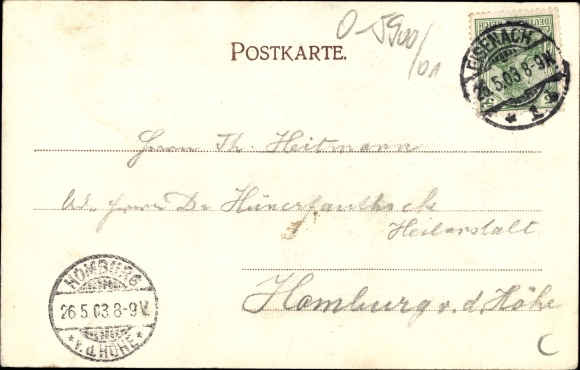 O-5900/01
POSTKARTE.
DEUTSCHES REICH
EISENACH
26.5.03.8-9V.
* 1 *
Herrn Th. Heitmann
Adr. Herrn Dr Hünerfauthsche
Heilanstalt
Homburg v. d. Höhe
HOMBURG
26.5.03.8-9V.
* v. d. HÖHE *